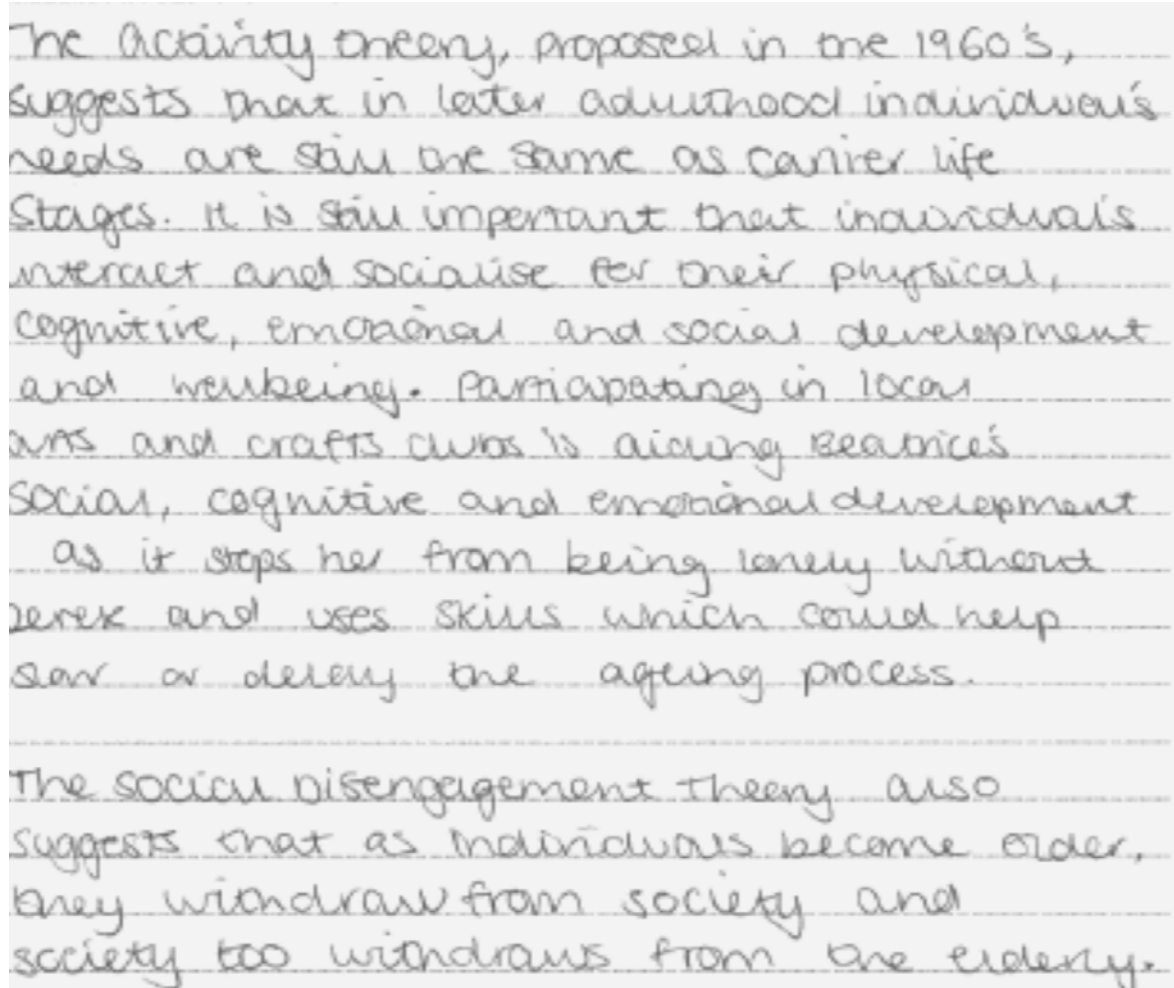 The Activity theory, proposed in the 1960's,
suggests that in later adulthood individual's
needs are still the same as earlier life
Stages. It is still important that individuals
interact and socialise for their physical,
cognitive, emotional and social development
and wellbeing. Participating in local
arts and crafts clubs is aiding Beatrice's
social, cognitive and emotional development
as it stops her from being lonely without
Derek and uses skills which could help
slow or delay the ageing process.
The Social Disengagement Theory also
suggests that as individuals become older,
they withdraw from society and
society too withdraws from the elderly.